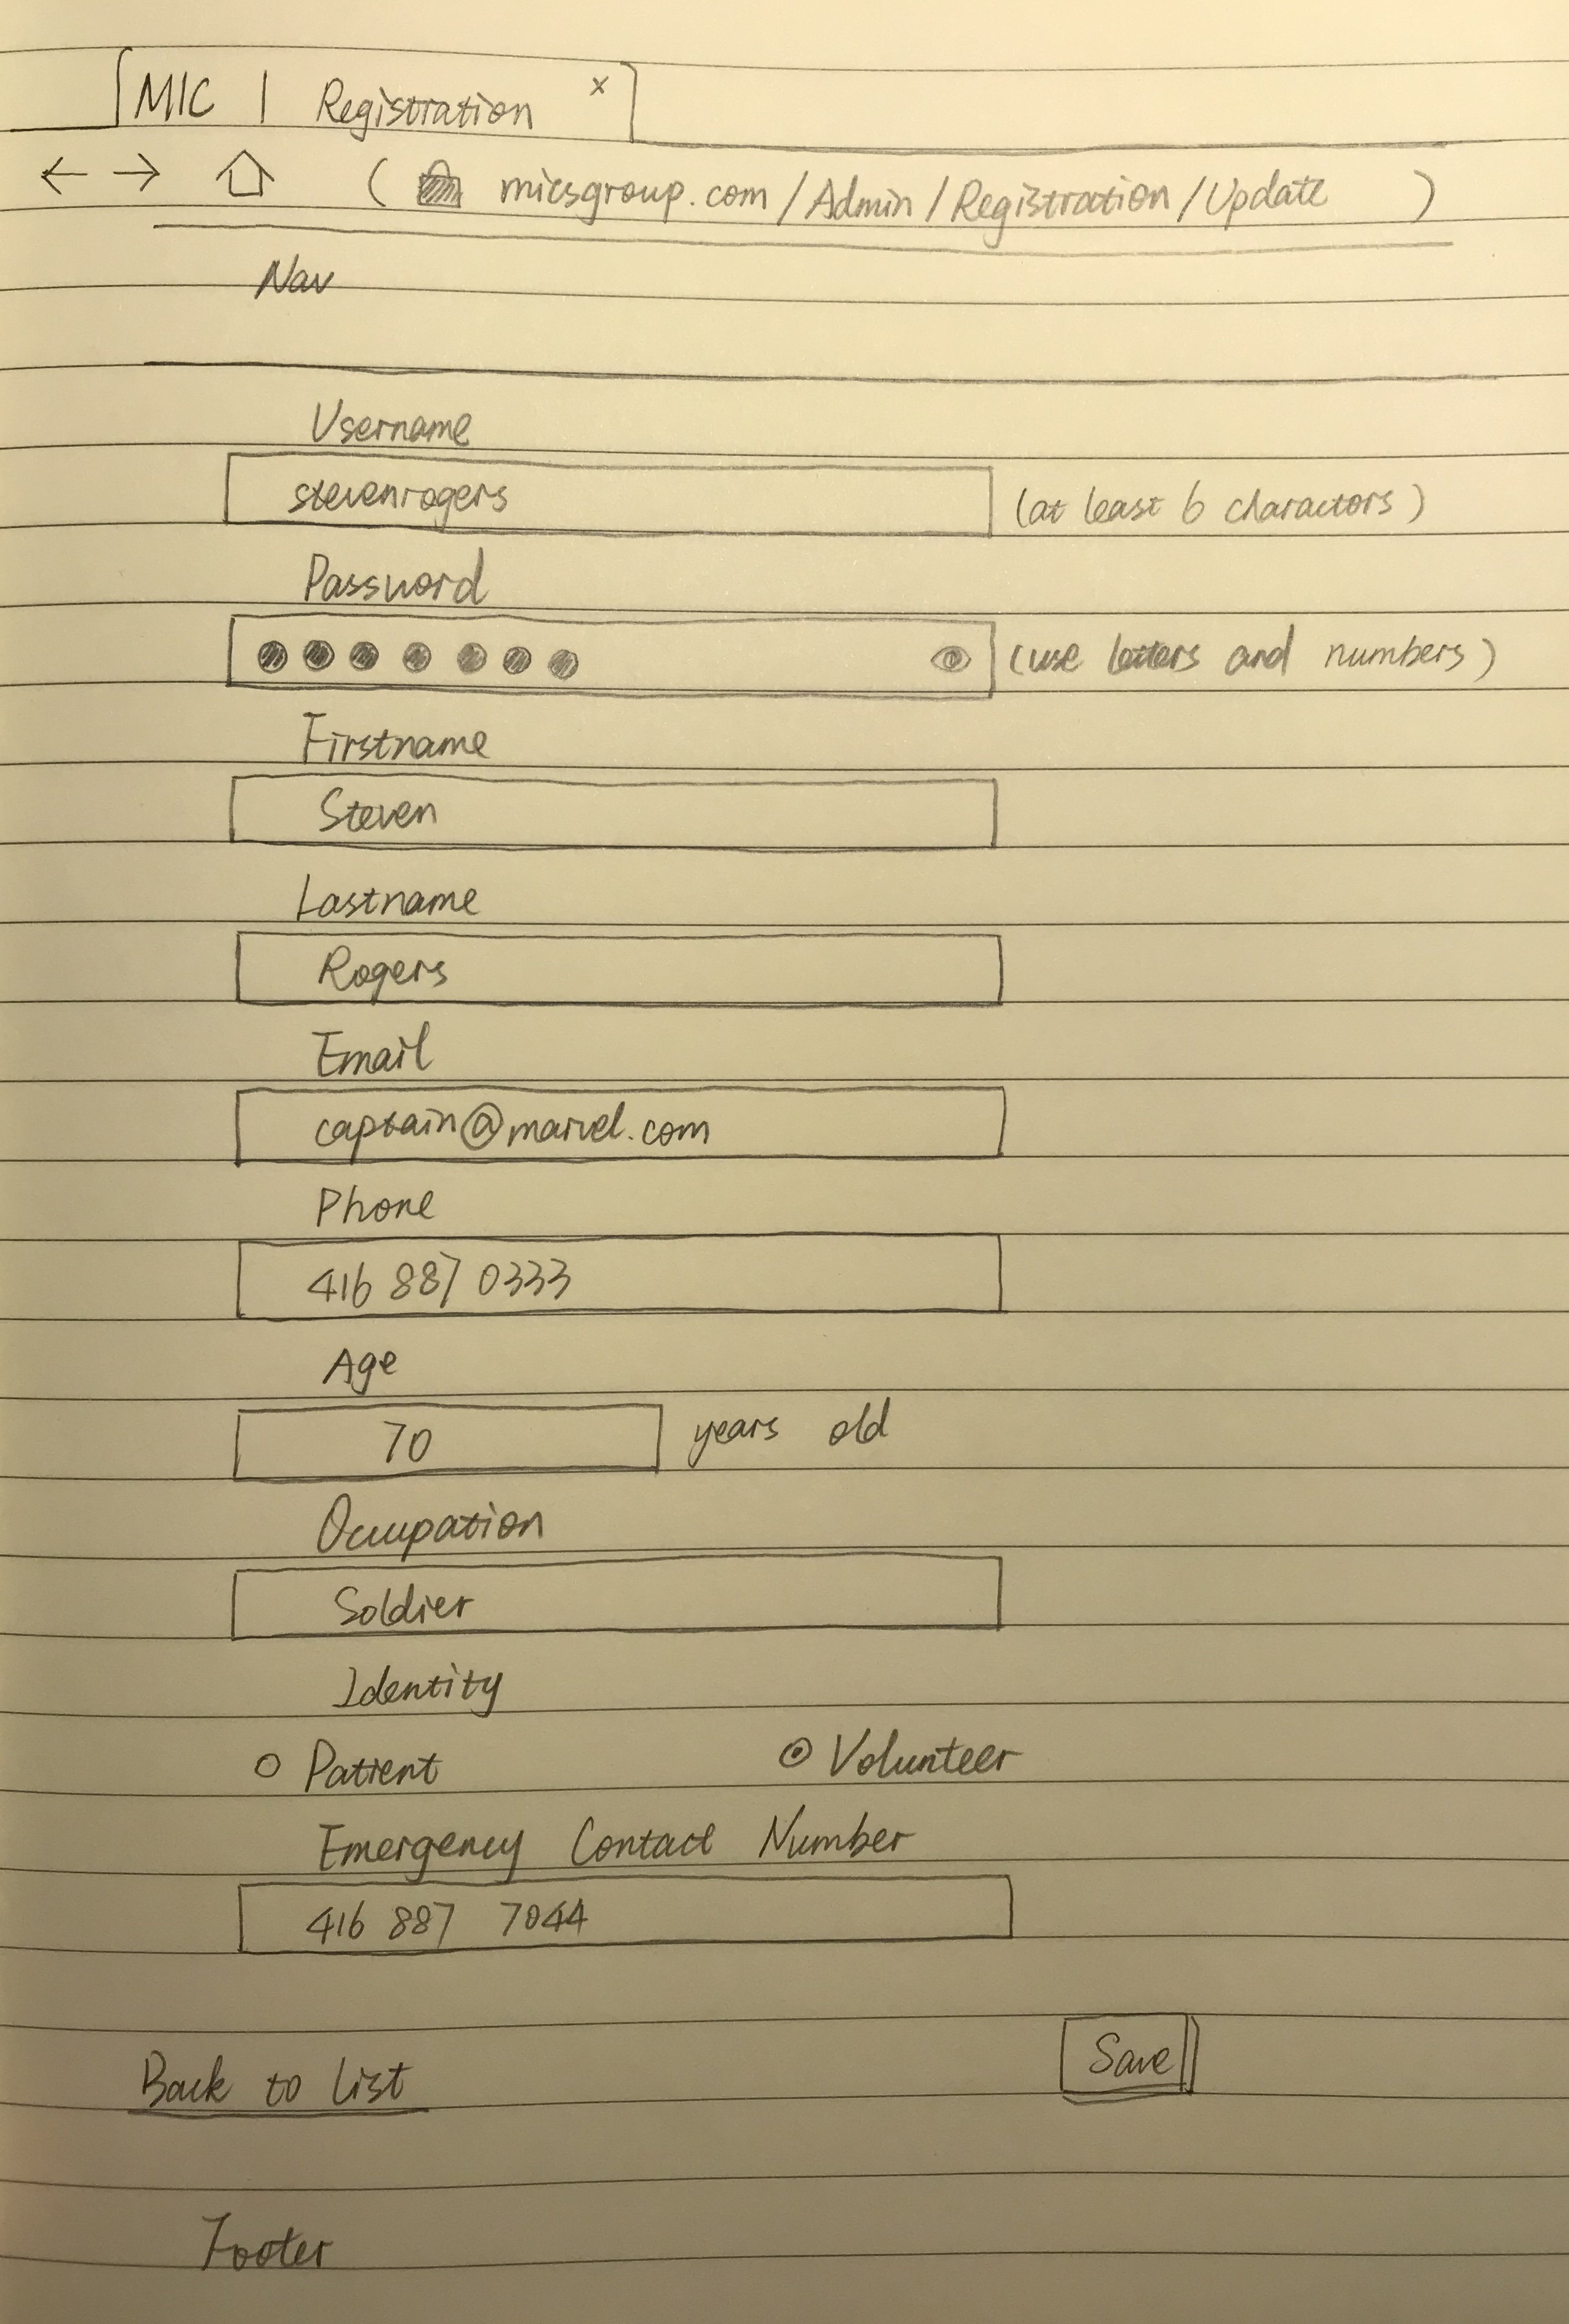 MIC | Registration x
micsgroup.com/Admin/Registration/Update
Nav
Username
stevenrogers (at least 6 charactors)
Password
(use letters and numbers)
Firstname
Steven
Lastname
Rogers
Email
captain@marvel.com
Phone
416 887 0333
Age
70 years old
Occupation
Soldier
Identity
Patient Volunteer
Emergency Contact Number
416 887 7044
Save
Back to List
Footer